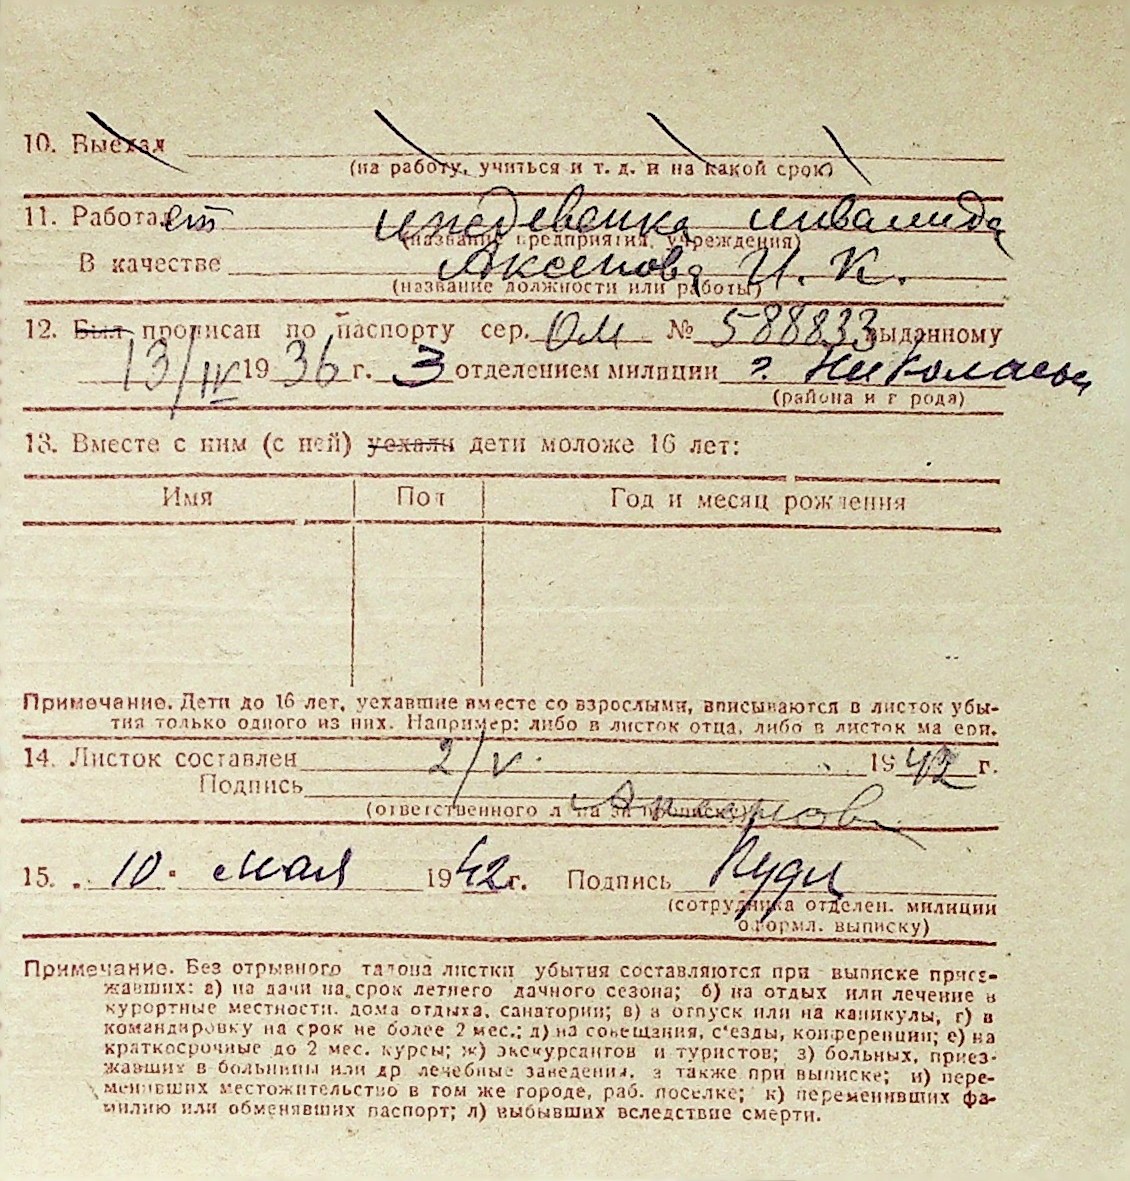 10. Выехал
(на работу, учиться и т. д. и на какой срок)
11. Работает иждевенка инвалида
(название предприятия, учреждения)
В качестве Аксенова И. К.
(название должности или работы)
12. Был прописан по паспорту сер. ОМ № 588833 выданному
13/IV 1936 г. 3 отделением милиции г. Николаевы
(района и г рода)
13. Вместе с ним (с ней) уехали дети моложе 16 лет:
Имя Пол Год и месяц рождения
Примечание. Дети до 16 лет, уехавшие вместе со взрослыми, вписываются в листок убы-
тия только одного из них. Например: либо в листок отца, либо в листок ма ери.
14. Листок составлен 2/V 1942 г.
Подпись Аксенова
(ответственного л ца за прописку)
15. 10 мая 1942 г. Подпись
(сотрудника отделен. милиции
оформл. выписку)
Примечание. Без отрывного талона листки убытия составляются при выписке приез-
жавших: а) на дачи на срок летнего дачного сезона; б) на отдых или лечение в
курортные местности, дома отдыха, санатории; в) в отпуск или на каникулы, г) в
командировку на срок не более 2 мес.; д) на совещания, с'езды, конференции; е) на
краткосрочные до 2 мес. курсы; ж) экскурсантов и туристов; з) больных, приез-
жавших в больницы или др лечебные заведения, а также при выписке; и) пере-
менивших местожительство в том же городе, раб. поселке; к) переменивших фа-
милию или обменявших паспорт; л) выбывших вследствие смерти.